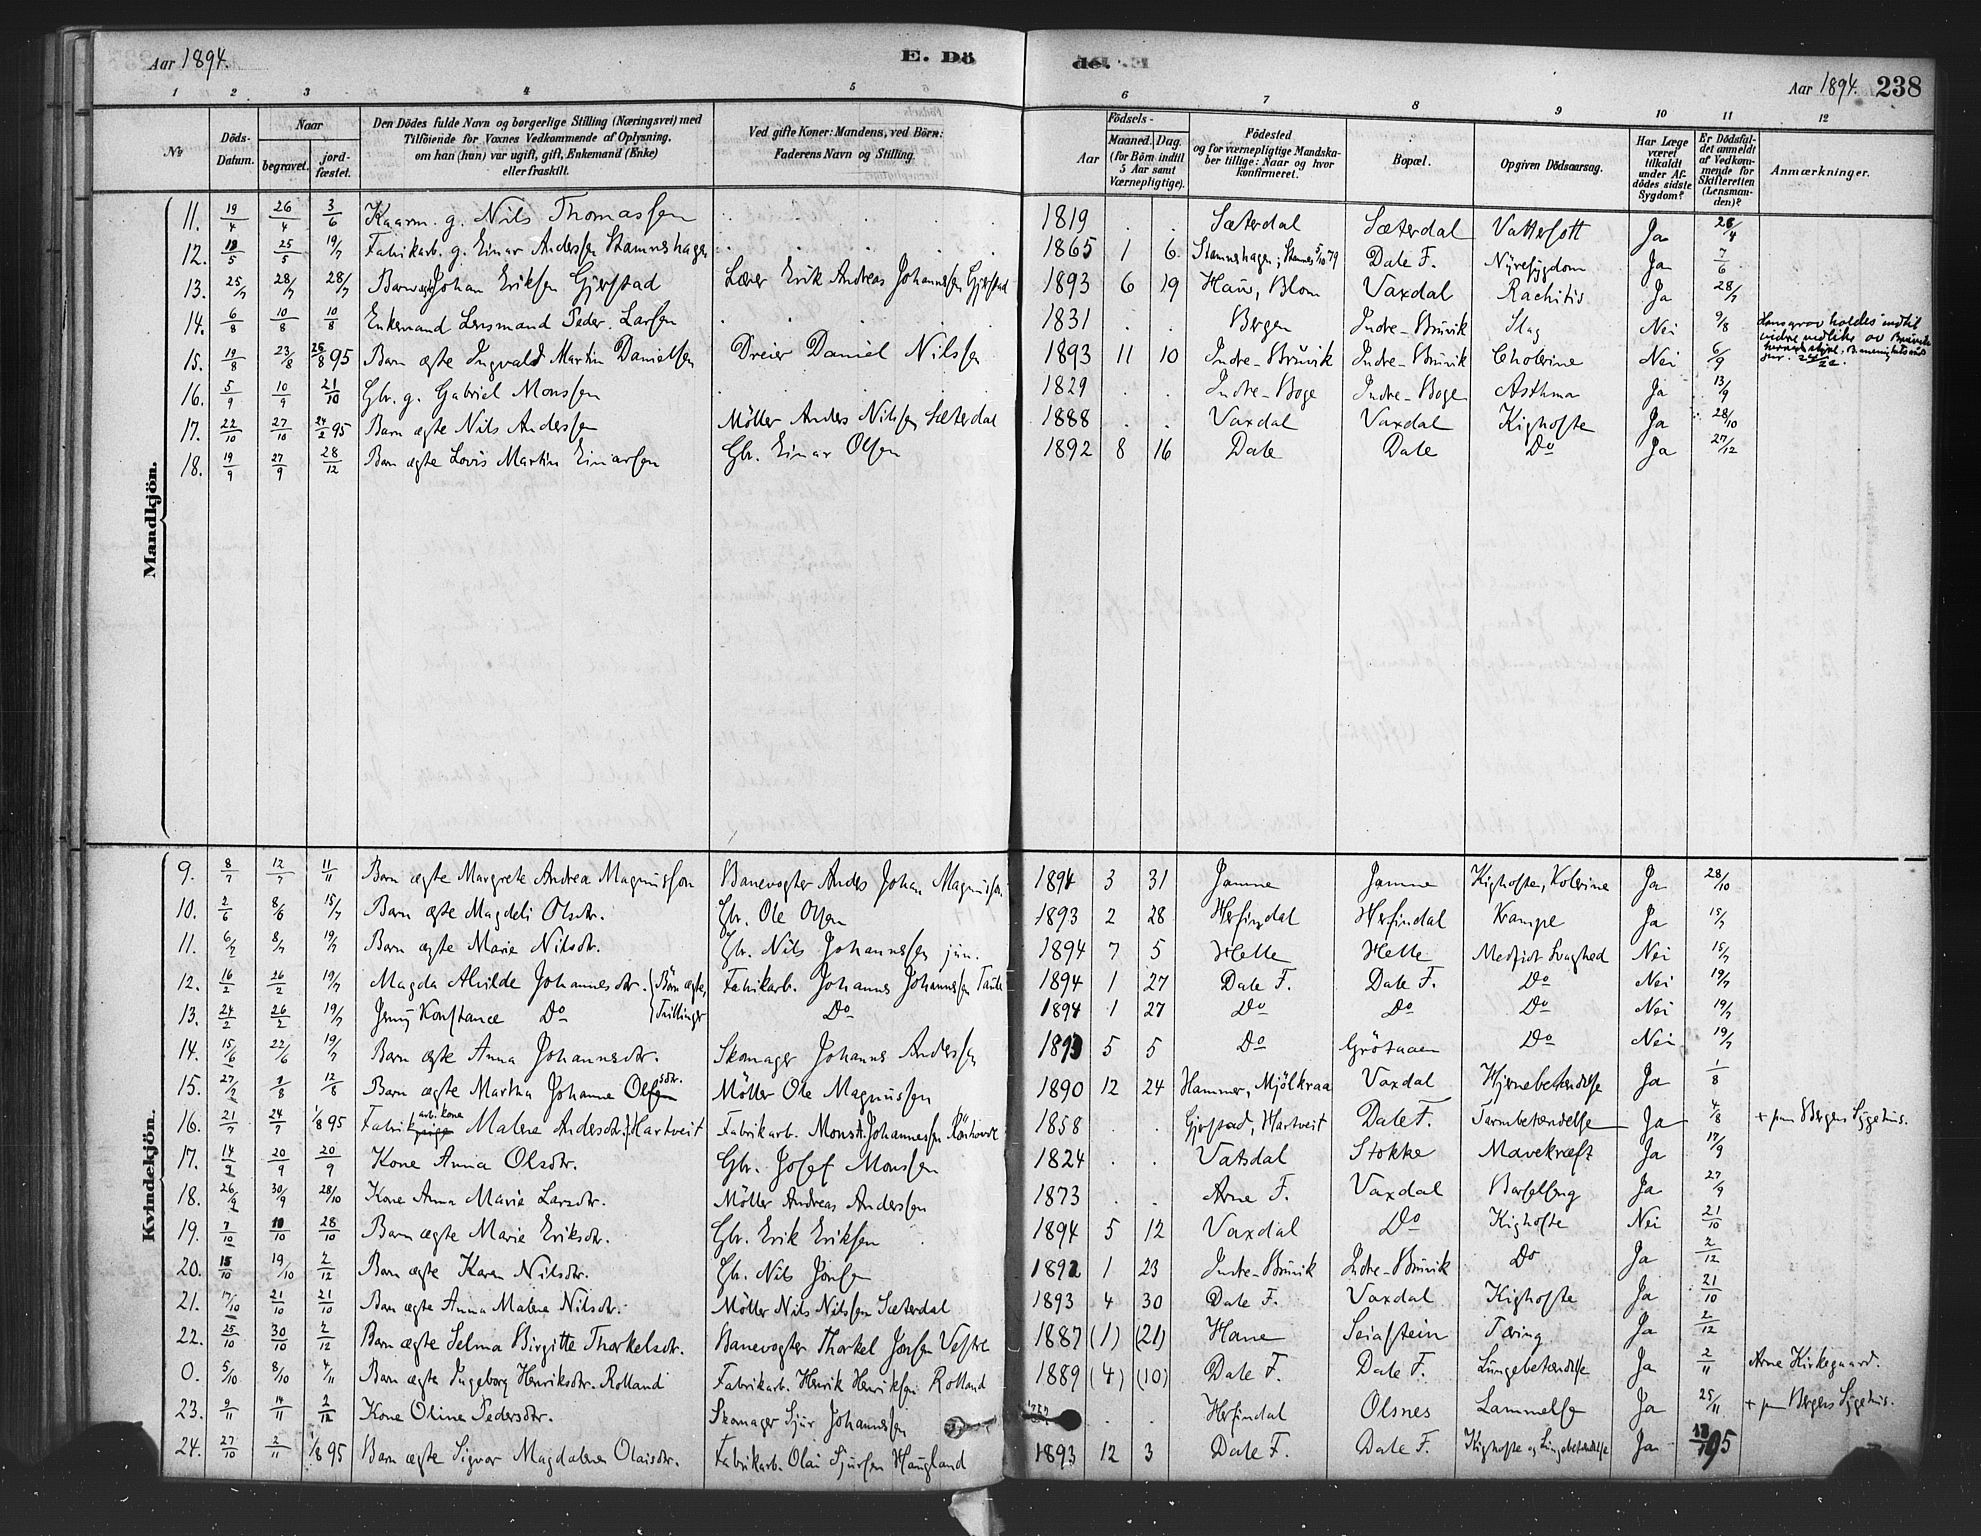 Aar 1894. E. Dö de. Aar 1894. 238
1 2 3 4 5 6 7 8 9 10 11 12
No Döds-Datum. Naar begravet. jord-fæstet. Den Dödes fulde Navn og borgerlige Stilling (Næringsvei) med Tilföiende for Voxnes Vedkommende af Oplysning, om han (hun) var ugift, gift, Enkemand (Enke) eller fraskilt. Ved gifte Koner: Mandens, ved Börn: Faderens Navn og Stilling. Födsels- Aar Maaned. Dag. (for Börn indtil 5 Aar samt Værnepligtige). Födested og for værnepligtige Mandskaber tillige: Naar og hvor konfirmeret. Bopæl. Opgiven Dödsaarsag. Har Læge været tilkaldt under Afdödes sidste Sygdom? Er Dödsfaldet anmeldt af Vedkommende for Skifteretten (Lensmanden)? Anmærkninger.
Mandkjön.
11. 19/4 26/4 3/6 Kaarm. g. Nils Thomassen . . 1819 . . Sæterdal Sæterdal Vattersott Ja 28/4
12. 18/5 25/5 19/7 Fabrikarb. g. Einar Anderssen Stamneshagen . . 1865 1 6. Stamneshagen; Stamnes 5/10 79 Dale F. Nyresygdom Ja 7/6
13. 25/7 28/7 28/7 Barn ægte Johan Eriksen Gjerstad Lærer Erik Andreas Johannessen Gjerstad 1893 6 19 Haus, Blom Vaxdal Rachitis Ja 28/7
14. 6/8 10/8 10/8 Enkemand Lensmand Peder Larsen . . 1831 . . Bergen Indre-Bruvik Slag Nei 9/8 holdes indtil
15. 19/8 23/8 25/8 95 Barn ægte Ingvald Martin Danielsen Dreier Daniel Nilssen 1893 11 10 Indre-Bruvik Indre-Bruvik Cholerine Nei 6/9
16. 5/9 10/9 21/10 Gbr. g. Gabriel Monssen . . 1829 . . Indre-Boge Indre-Boge Asthma Ja 13/9
17. 22/10 27/10 24/2 95 Barn ægte Nils Anderssen Möller Anders Nilssen Sæterdal 1888 . . Vaxdal Vaxdal Kighoste Ja 28/10
18. 19/9 27/9 28/12 Barn ægte Lovis Martin Einarsen Gbr. Einar Olsen 1892 8 16 Dale Dale Do Ja 27/12
Kvindekjön.
9. 8/7 12/7 11/11 Barn ægte Margrete Andrea Magnusson Banevogter Anders Johan Magnusson 1894 3 31 Jamne Jamne Kighoste, Kolerine Ja 28/10
10. 2/6 8/6 15/7 Barn ægte Magdeli Olsdtr. Gbr. Ole Olsen 1893 2 28 Herfindal Herfindal Krampe Ja 15/7
11. 6/7 8/7 19/7 Barn ægte Marie Nilsdtr. Gbr. Nils Johannessen jun. 1894 7 5 Helle Helle Medfödt Svaghed Nei 15/7
12. 16/2 26/2 19/7 Magda Alvilde Johannesdtr. Börn ægte, Fabrikarb. Johannes Johannessen 1894 1 27 Dale F. Dale F. Do Nei 19/7
13. 24/2 26/2 19/7 Jenny Konstance Do Tvillinger Do 1894 1 27 Do Do Do Nei 19/7
14. 15/6 22/6 19/7 Barn ægte Anna Johannesdtr. Skomager Johannes Anderssen 1893 5 5 Do Do Nei 19/7
15. 27/7 1/8 12/8 Barn ægte Martha Johanne Olsdtr. Möller Ole Magnussen 1890 12 24 Hammer, Mjölkraa Vaxdal Hjernebetændelse Ja 1/8
16. 21/7 24/7 1/8 95 Fabrikarb. kone Malene Andersdtr. Hartveit Fabrikarb. Mons Johannessen 1858 . . Gjerstad, Hartveit Dale F. Tarmbetændelse Ja 4/8 + paa Bergens Sygehus.
17. 14/9 20/9 20/9 Kone Anna Olsdtr. Gbr. Josef Monsen 1824 . . Vatsdal Stokke Mavekræft Ja 17/9
18. 26/9 30/9 28/10 Kone Anna Marie Larsdtr. Möller Andreas Anderssen 1873 . . Arne F. Vaxdal Barselseng Ja 27/9
19. 7/10 10/10 28/10 Barn ægte Marie Eriksdtr. Gbr. Erik Eriksen 1894 5 12 Vaxdal Do Kighoste Nei 21/10
20. 15/10 19/10 2/12 Barn ægte Karen Nilsdtr. Gbr. Nils Jonsen 1892 1 23 Indre-Bruvik Indre-Bruvik Do Ja 2/12
21. 17/10 21/10 21/10 Barn ægte Anna Malene Nilsdtr. Möller Nils Nilssen Sæterdal 1893 4 30 Dale F. Vaxdal Kighoste Ja 21/10
22. 25/10 30/10 2/12 Barn ægte Selma Birgitte Thorkelsdtr. Banevogter Thorkel Jonsen Vestre 1887 (1) (21) Hane Seiastein Tæring Ja 2/12
0. 5/10 8/10 4/11 Barn ægte Ingeborg Henriksdtr. Rolland Fabrikarb. Henrik Henriksen Rolland 1889 (4) (10) Dale F. Dale F. Lungebetændelse Ja 2/11 Arne Kirkegaard.
23. 9/11 14/11 2/12 Kone Oline Pedersdtr. Skomager Sjur Johannessen . . Herfindal Olsnes Lammelse Ja 25/11 + paa Bergens Sygehus.
24. 27/10 2/11 1/8 95 Barn ægte Sigvor Magdalena Olaisdtr. Fabrikarb. Olai Sjursen Haugland 1893 12 3 Dale F. Dale F. Kighoste og Lungebetændelse Ja 95